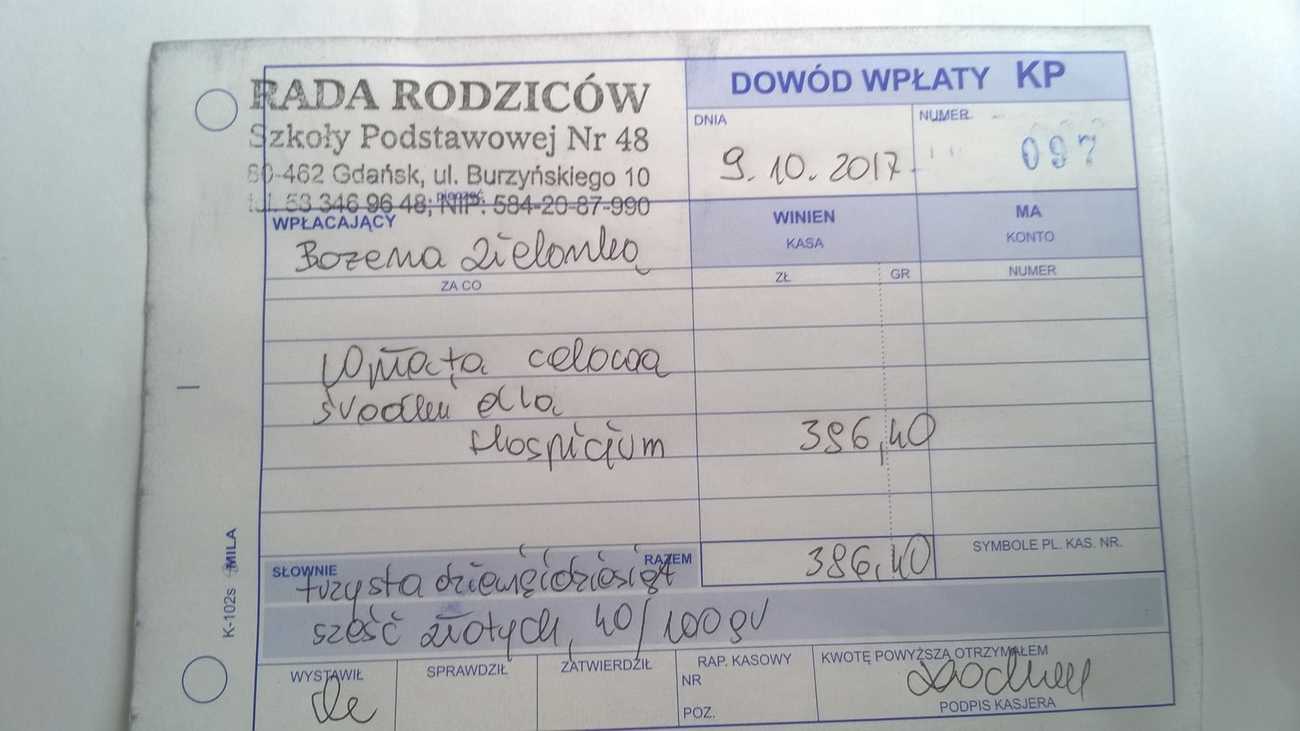 RADA RODZICÓW
Szkoły Podstawowej Nr 48
80-462 Gdańsk, ul. Burzyńskiego 10
tel. 58 346 96 48; NIP: 584-20-87-990
pieczęć
DOWÓD WPŁATY KP
DNIA
NUMER
9.10.2017
097
WPŁACAJĄCY
Bożena Zielonka
WINIEN
KASA
MA
KONTO
ZA CO
ZŁ
GR
NUMER
Wpłata celowa
środki dla
Hospicjum
396,40
SŁOWNIE
RAZEM
396,40
SYMBOLE PL. KAS. NR.
trzysta dziewięćdziesiąt
sześć złotych, 40/100 gr
WYSTAWIŁ
SPRAWDZIŁ
ZATWIERDZIŁ
RAP. KASOWY
NR
POZ.
KWOTĘ POWYŻSZĄ OTRZYMAŁEM
PODPIS KASJERA
K-102s MILA